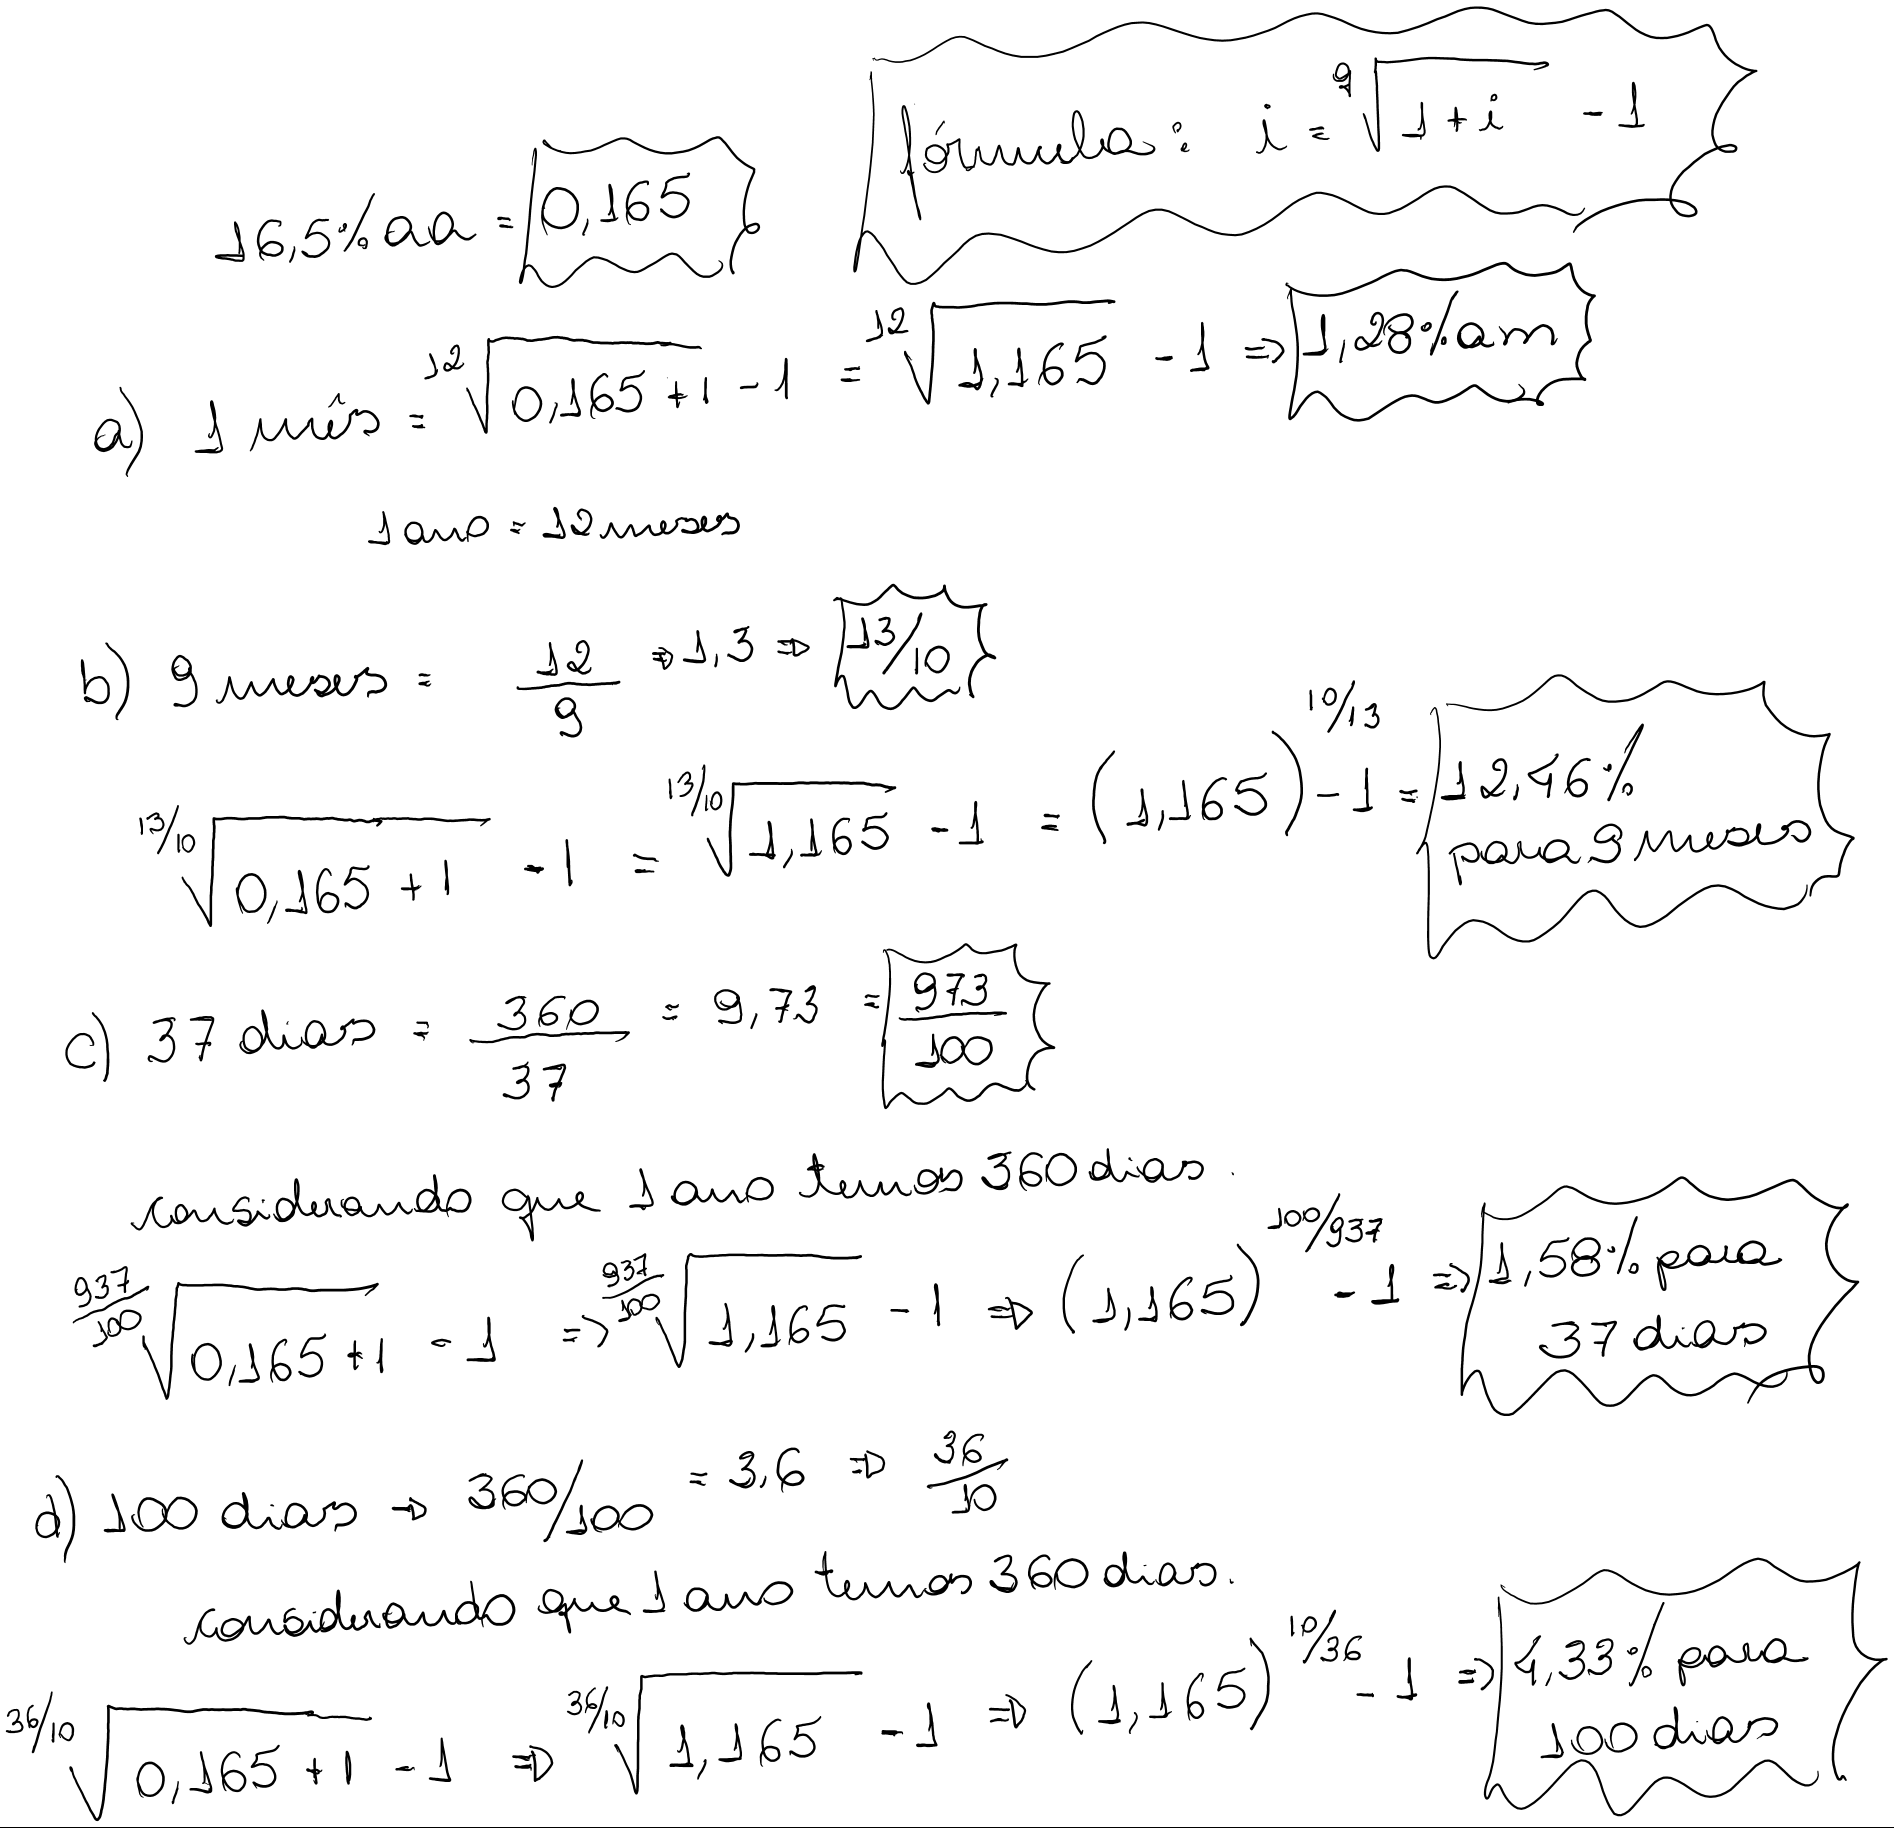 fórmula: i = q√(1+i) - 1
16,5% aa = 0,165
a) 1 mês = 12√(0,165 + 1) - 1 = 12√(1,165) - 1 => 1,28% am
1 ano = 12 meses
b) 9 meses = 12/9 => 1,3 => 13/10
13/10√(0,165 + 1) - 1 = 13/10√(1,165) - 1 = (1,165)^10/13 - 1 = 12,46%
para 9 meses
c) 37 dias = 360/37 = 9,73 = 973/100
considerando que 1 ano temos 360 dias.
937/100√(0,165 + 1) - 1 => 937/100√(1,165) - 1 => (1,165)^100/937 - 1 => 1,58% para
37 dias
d) 100 dias → 360/100 = 3,6 => 36/10
considerando que 1 ano temos 360 dias.
36/10√(0,165 + 1) - 1 => 36/10√(1,165) - 1 => (1,165)^10/36 - 1 => 4,33% para
100 dias